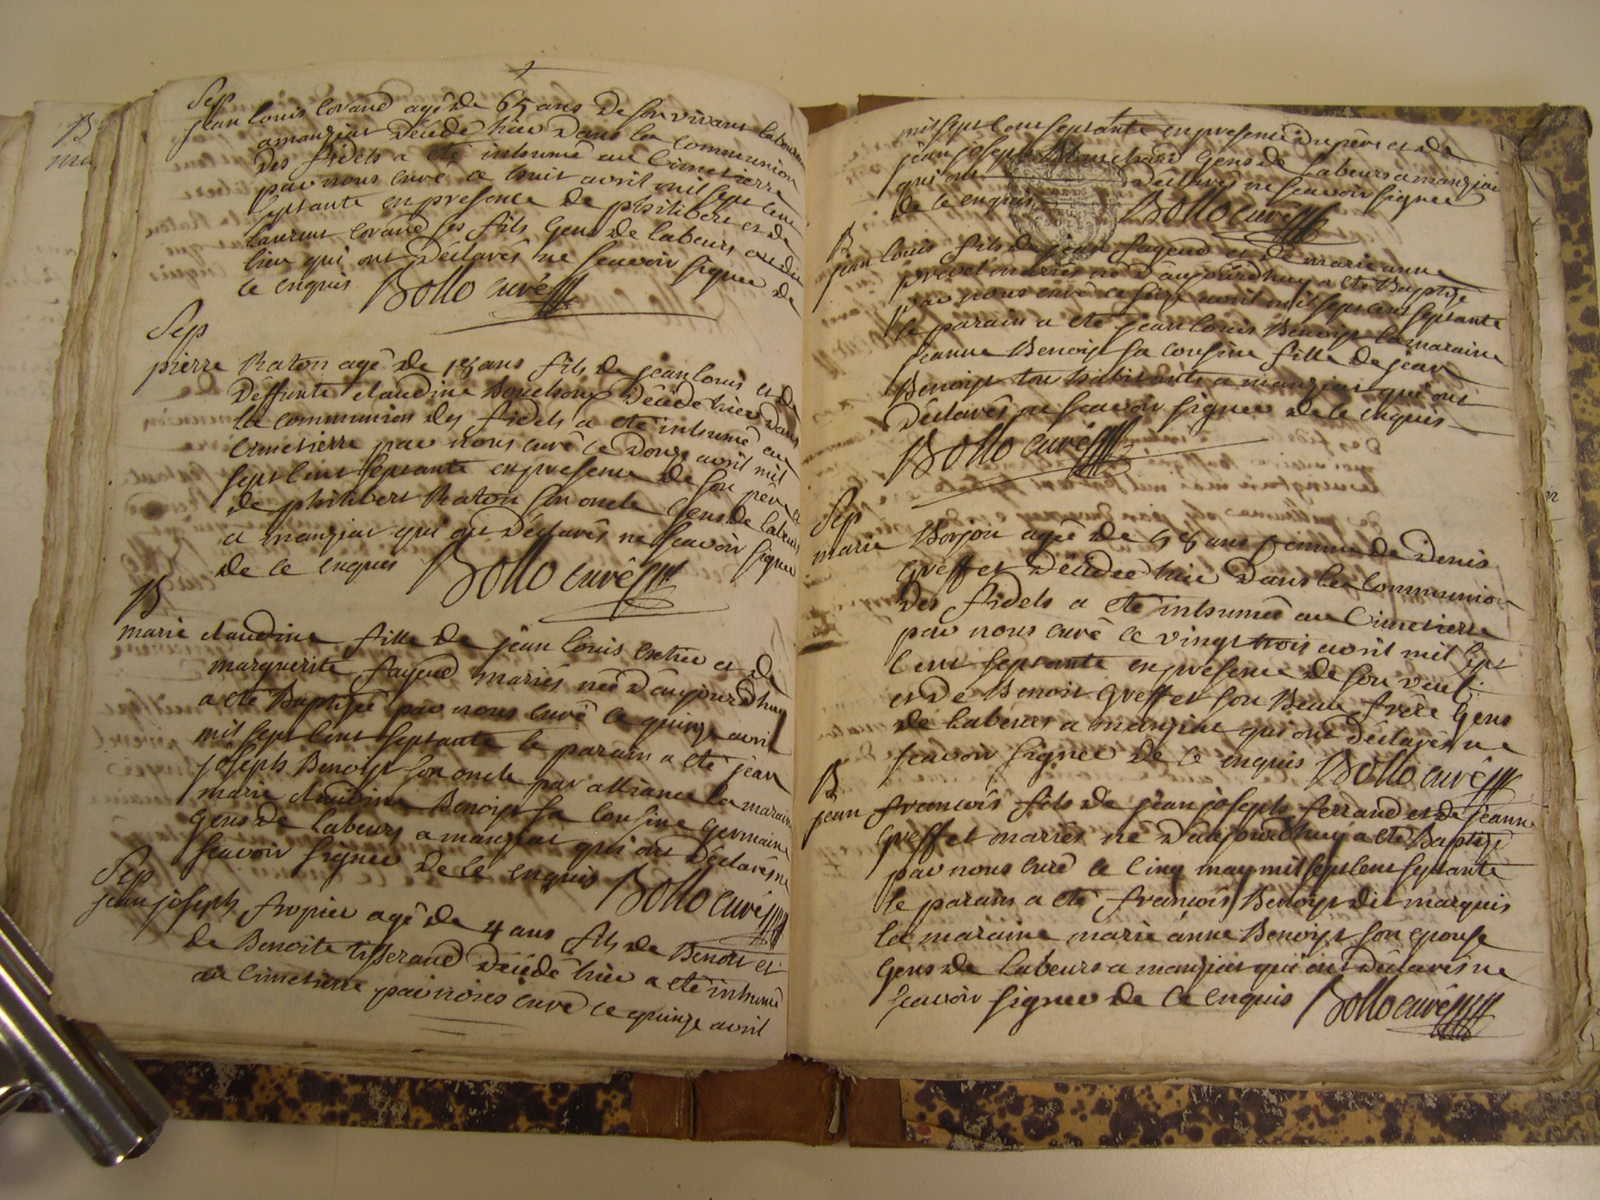 Sep
jean louis Corand agé de 65 ans de son vivant laboureur
a manziat décédé hier dans la communion
des fidels a eté inhumé au Cimetierre
par nous curé ce huit avril mil sept cent
septante en presence de philibert et de
laurent Corand ses fils Gens de labeurs audit
lieu qui ont déclarés ne scavoir signer de
ce enquis Bollo curé
Sep
pierre Raton agé de 18 ans fils de jean louis et de
deffunte claudine Bouchoux décédé hier dans
la communion des fidels a eté inhumé au
Cimetierre par nous curé ce douze avril mil
sept cent septante en presence de son père et
de philibert Raton son oncle Gens de labeurs
a manziat qui ont déclarés ne scavoir signer
de ce enquis Bollo curé
B
marie claudine fille de jean louis Catherin et de
marguerite fayend mariés née d'aujourdhuy
a eté Baptisée par nous curé ce quinze avril
mil sept cent septante le parain a eté jean
joseph Benoist son oncle par alliance la maraine
marie claudine Benoist sa cousine germaine
Gens de labeurs a manziat qui ont déclarés ne
scavoir signer de ce enquis Bollo curé
Sep
jean joseph fropier agé de 4 ans fils de Benoit et
de Benoite tisserand décédé hier a eté inhumé
au Cimetierre par nous curé ce quinze avril
mil sept cent septante en presence du père et de
jean joseph Blanchard Gens de labeurs a manziat
qui ont déclarés ne scavoir signer
de ce enquis Bollo curé
B
jean louis fils de jean fayend et de marie anne
pravet mariés né d'aujourdhuy a eté Baptisé
par nous curé ce seize avril mil sept cent septante
le parain a eté jean louis Benoist la maraine
jeanne Benoist sa cousine fille de jean
Benoist tous habitants a manziat qui ont
déclarés ne scavoir signer de ce enquis
Bollo curé
Sep
marie Borjon agée de 58 ans femme de Denis
Greffet décédée hier dans la communion
des fidels a eté inhumée au Cimetierre
par nous curé ce vingt trois avril mil sept
cent septante en presence de son veuf
et de Benoit Greffet son Beau frère Gens
de labeurs a manziat qui ont déclarés ne
scavoir signer de ce enquis Bollo curé
B
jean francois fils de jean joseph ferrand et de jeanne
Greffet mariés né d'aujourdhuy a eté Baptisé
par nous curé ce cinq may mil sept cent septante
le parain a eté francois Benoist dit marquis
la maraine marie anne Benoist son epouse
Gens de labeurs a manziat qui ont déclarés ne
scavoir signer de ce enquis Bollo curé